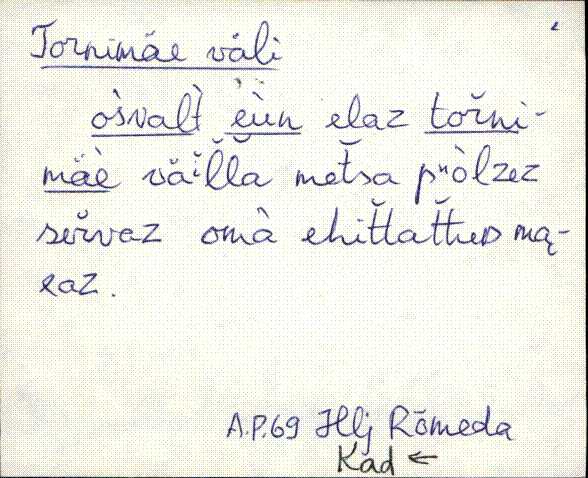 Tornimäe väli
òsvalt̀ èùn elaz tor̆ni-
mäè väĭl̆l̆a met̆sa pᵘòlzez
ser̆vaz omà ehit̆tat̆tuD mą-
eaz.
A.P.69 Hlj Rõmeda
Kad ←